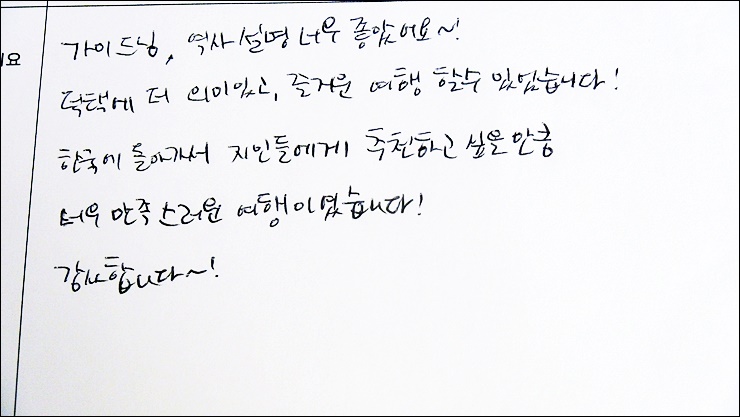 가이드님, 역사설명 너무 좋았어요~!
요
덕택에 더 의미있고, 즐거운 여행 할수 있었습니다!
한국에 돌아가서 지인들에게 추천하고 싶을만큼
너무 만족스러운 여행이였습니다!
감사합니다~!